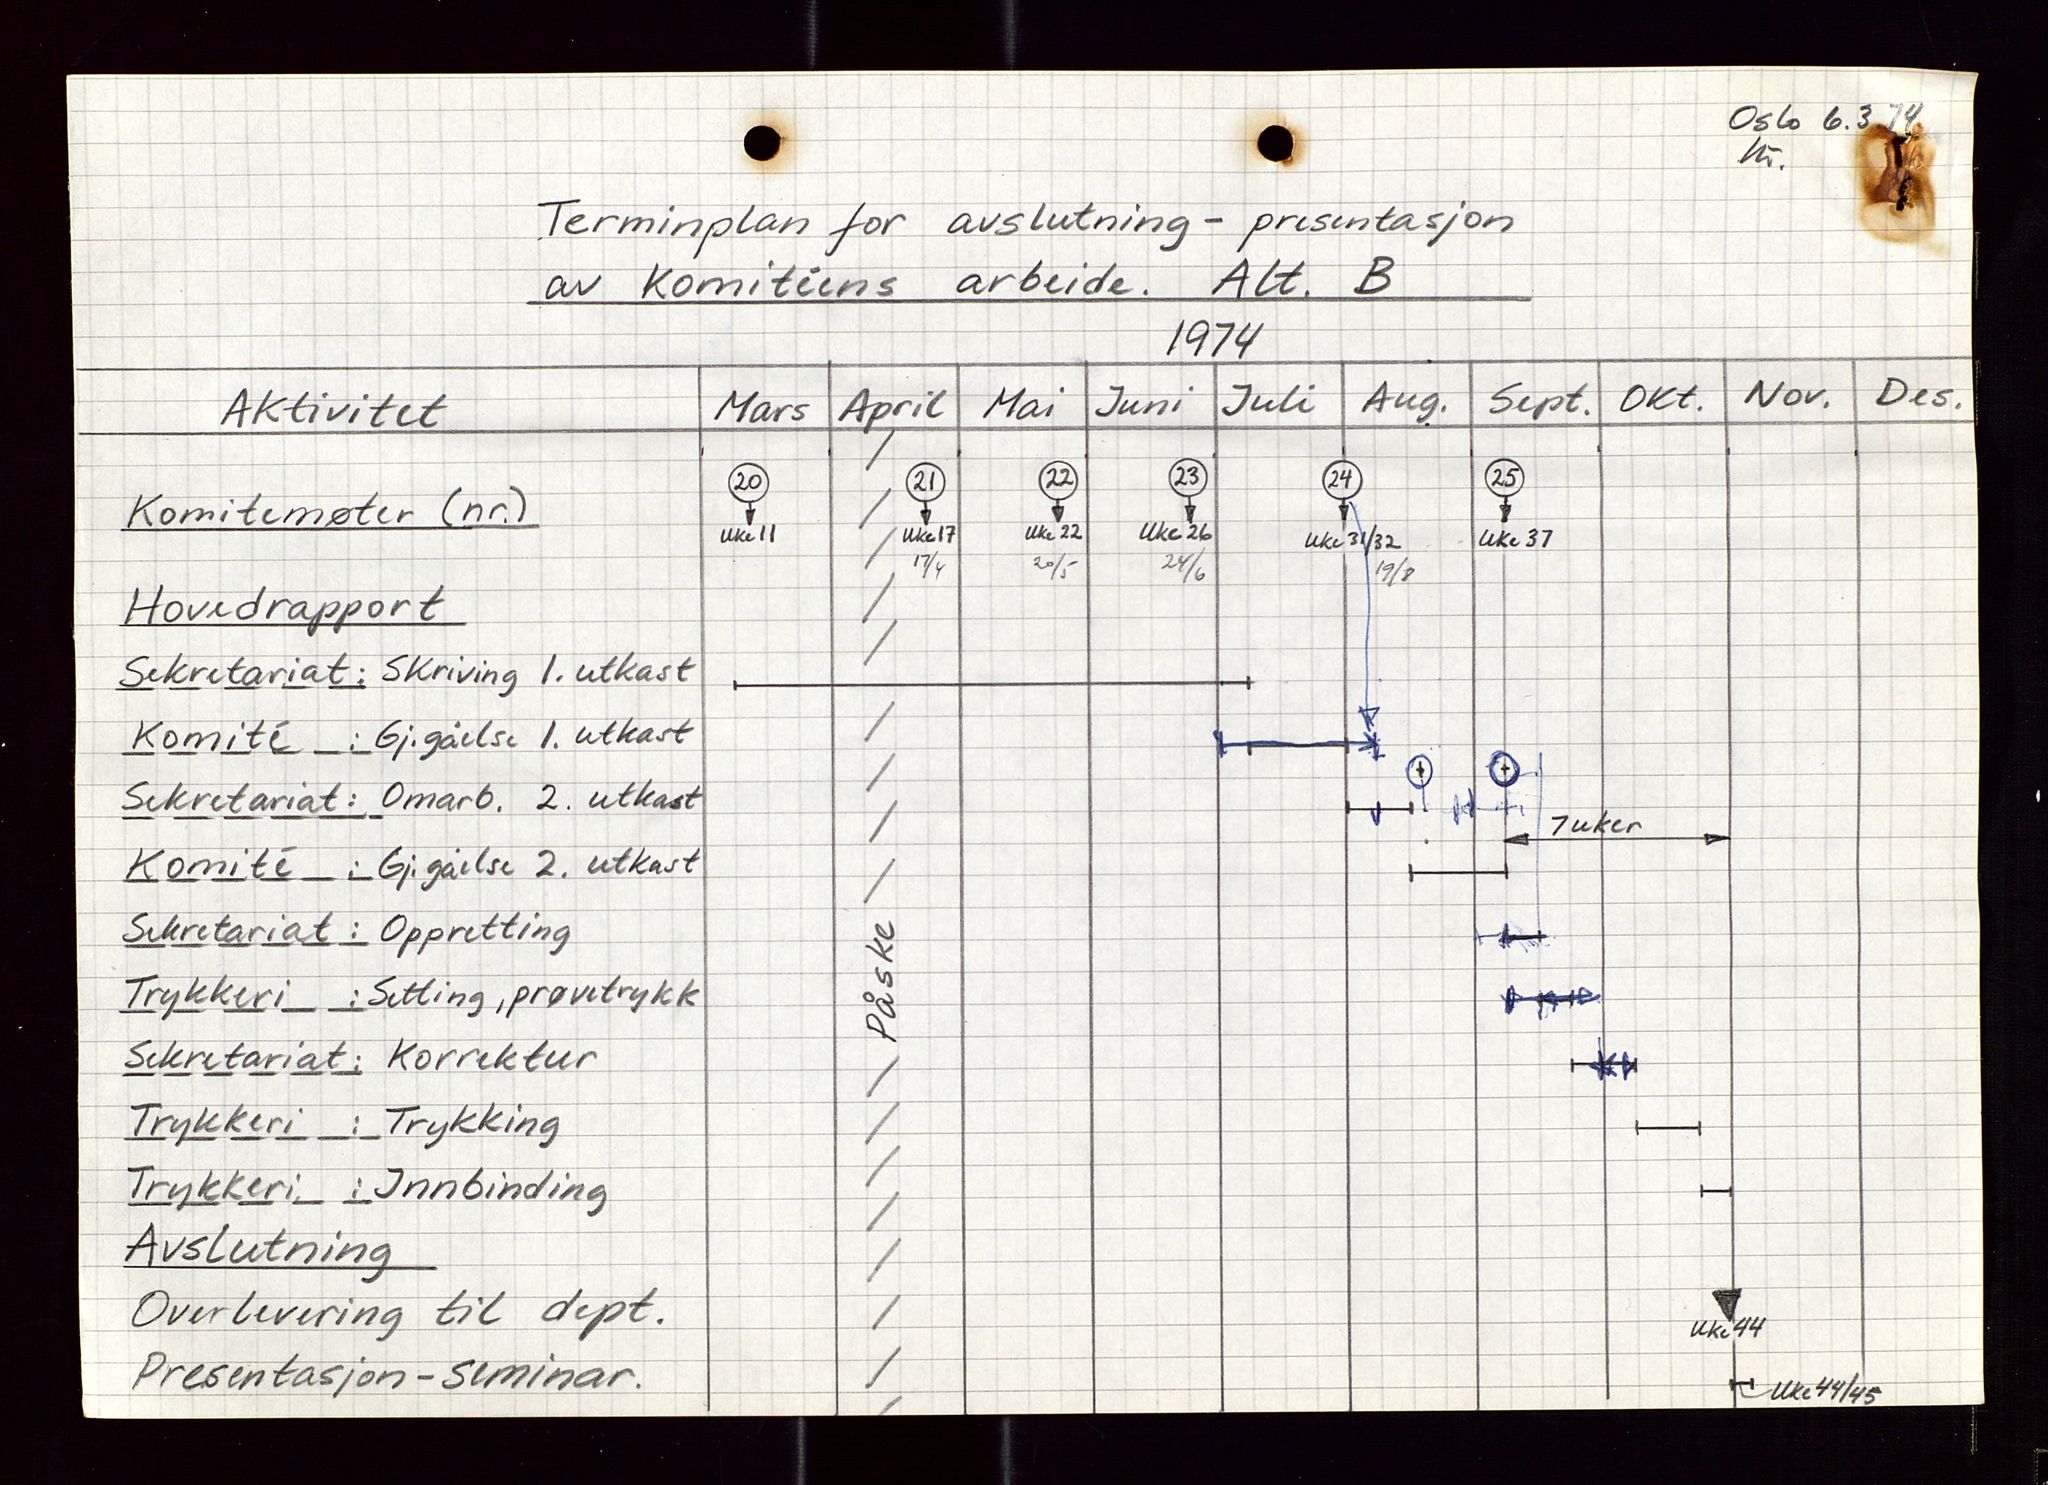 Oslo 6.3.74
Terminplan for avslutning - presentasjon
av Komitéens arbeide. Alt. B
1974
Aktivitet Mars April Mai Juni Juli Aug. Sept. Okt. Nov. Des.
20 21 22 23 24 25
Komitemøter (nr.)
Uke 11 Uke 17 Uke 22 Uke 26 Uke 31/32 Uke 37
17/4 20/5 24/6 19/8
Hovedrapport
Sekretariat: Skriving 1. utkast
Komité : Gj.gåelse 1. utkast
Sekretariat: Omarb. 2. utkast
7 uker
Komité : Gj.gåelse 2. utkast
Sekretariat: Oppretting
Påske
Trykkeri : Setting, prøvetrykk
Sekretariat: Korrektur
Trykkeri : Trykking
Trykkeri : Innbinding
Avslutning
Overlevering til dept.
Uke 44
Presentasjon - seminar.
Uke 44/45